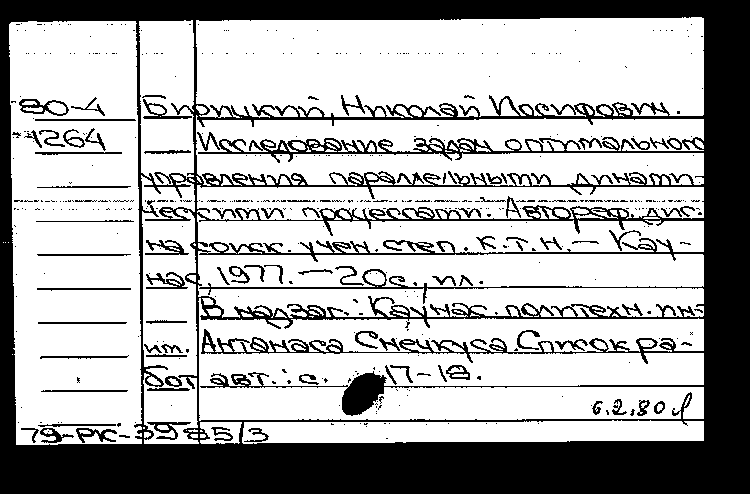 80-4 Бирицкий, Николай Иосифович.
1264 Исследование задач оптимального
управления параллельными динами-
ческими процессами: Автореф. дис.
на соиск. учен. степ. к.т.н. — Кау-
нас, 1977. — 20с., ил.
В надзаг.: Каунас. политехн. ин-т
им. Антанаса Снечкуса. Список ра-
бот авт.: с. 17-18.
6.2.80
79-РК-3985/3